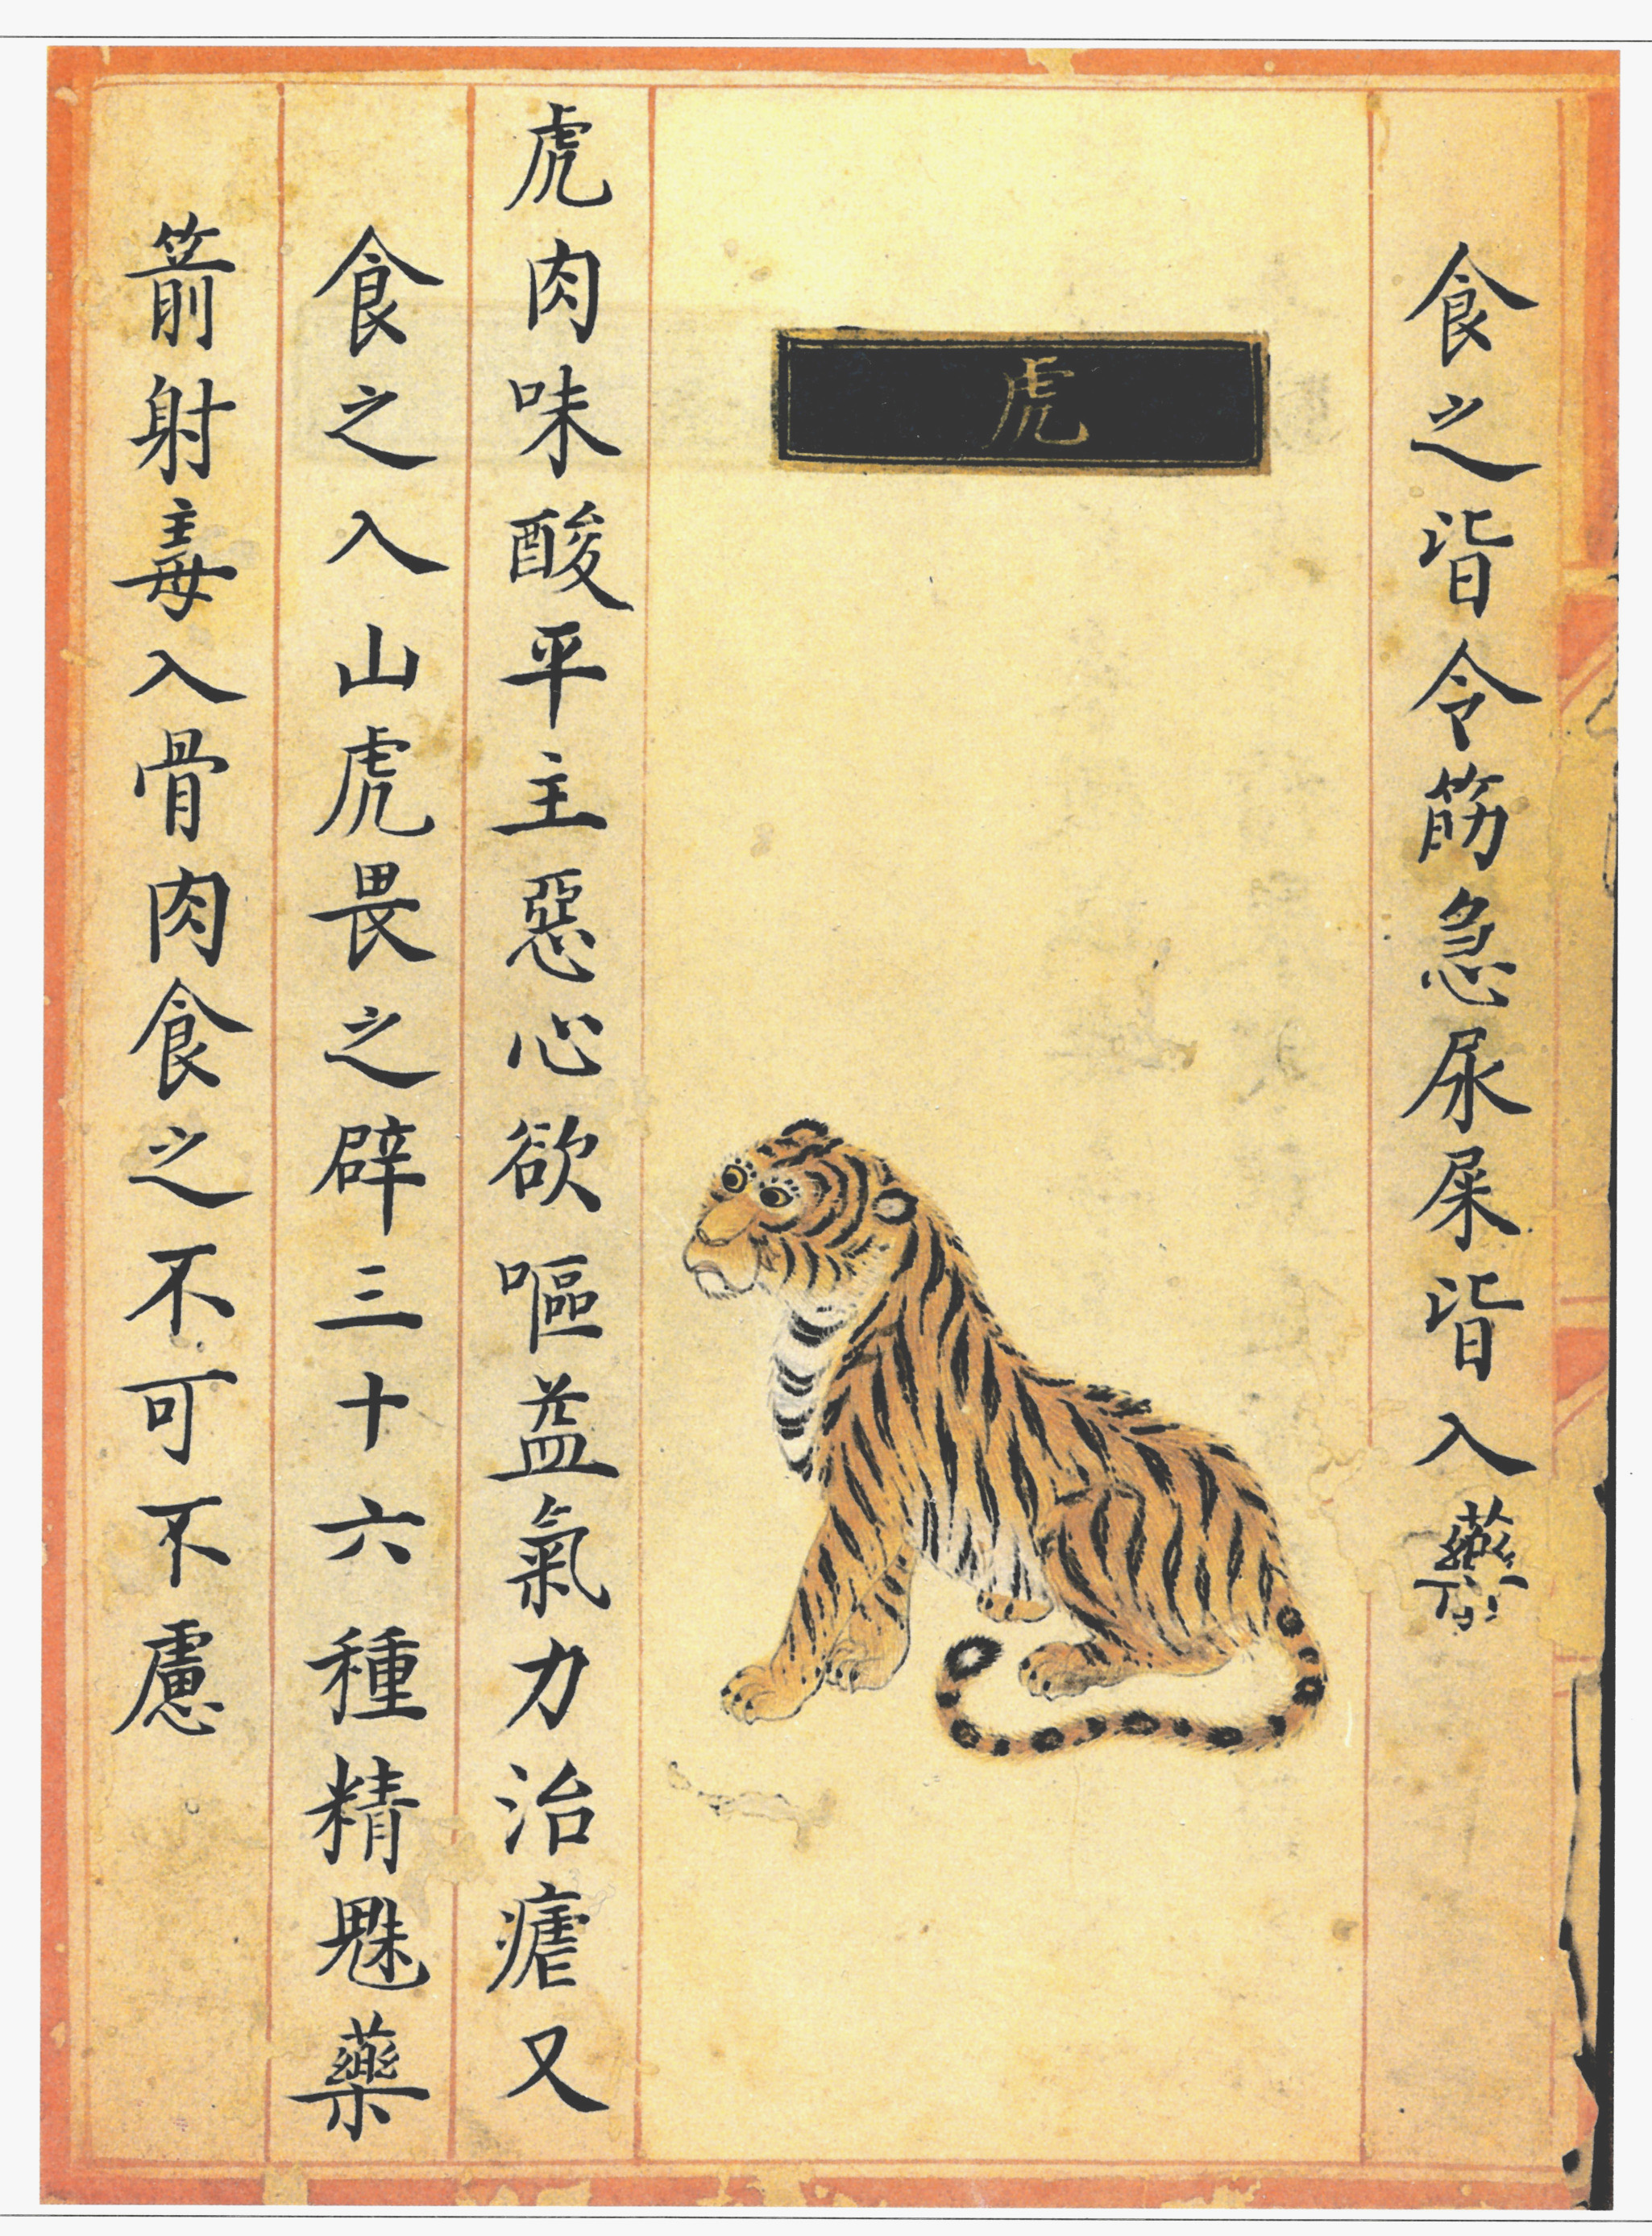 食之皆令筋急尿屎皆入藥
虎
虎肉味酸平主惡心欲嘔益氣力治瘧又
食之入山虎畏之辟三十六種精魅藥
箭射毒入骨肉食之不可不慮